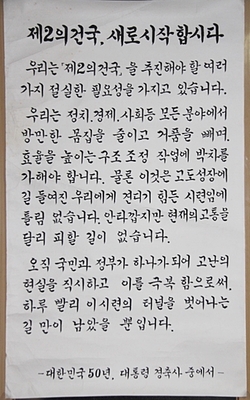 제2의건국, 새로시작합시다
우리는 「제2의건국」을 추진해야할 여러
가지 절실한 필요성을 가지고 있습니다.
우리는 정치.경제.사회등 모든 분야에서
방만한 몸집을 줄이고 거품을 빼며,
효율을 높이는 구조 조정 작업에 박차를
가해야 합니다. 물론 이것은 고도성장에
길 들여진 우리에게 견디기 힘든 시련임에
틀림 없습니다. 안타깝지만 현재의고통을
달리 피할 길이 없습니다.
오직 국민과 정부가 하나가되어 고난의
현실을 직시하고 이를 극복 함으로써,
하루 빨리 이시련의 터널을 벗어나는
길 만이 남았을 뿐입니다.
-대한민국50년, 대통령 경축사 중에서-